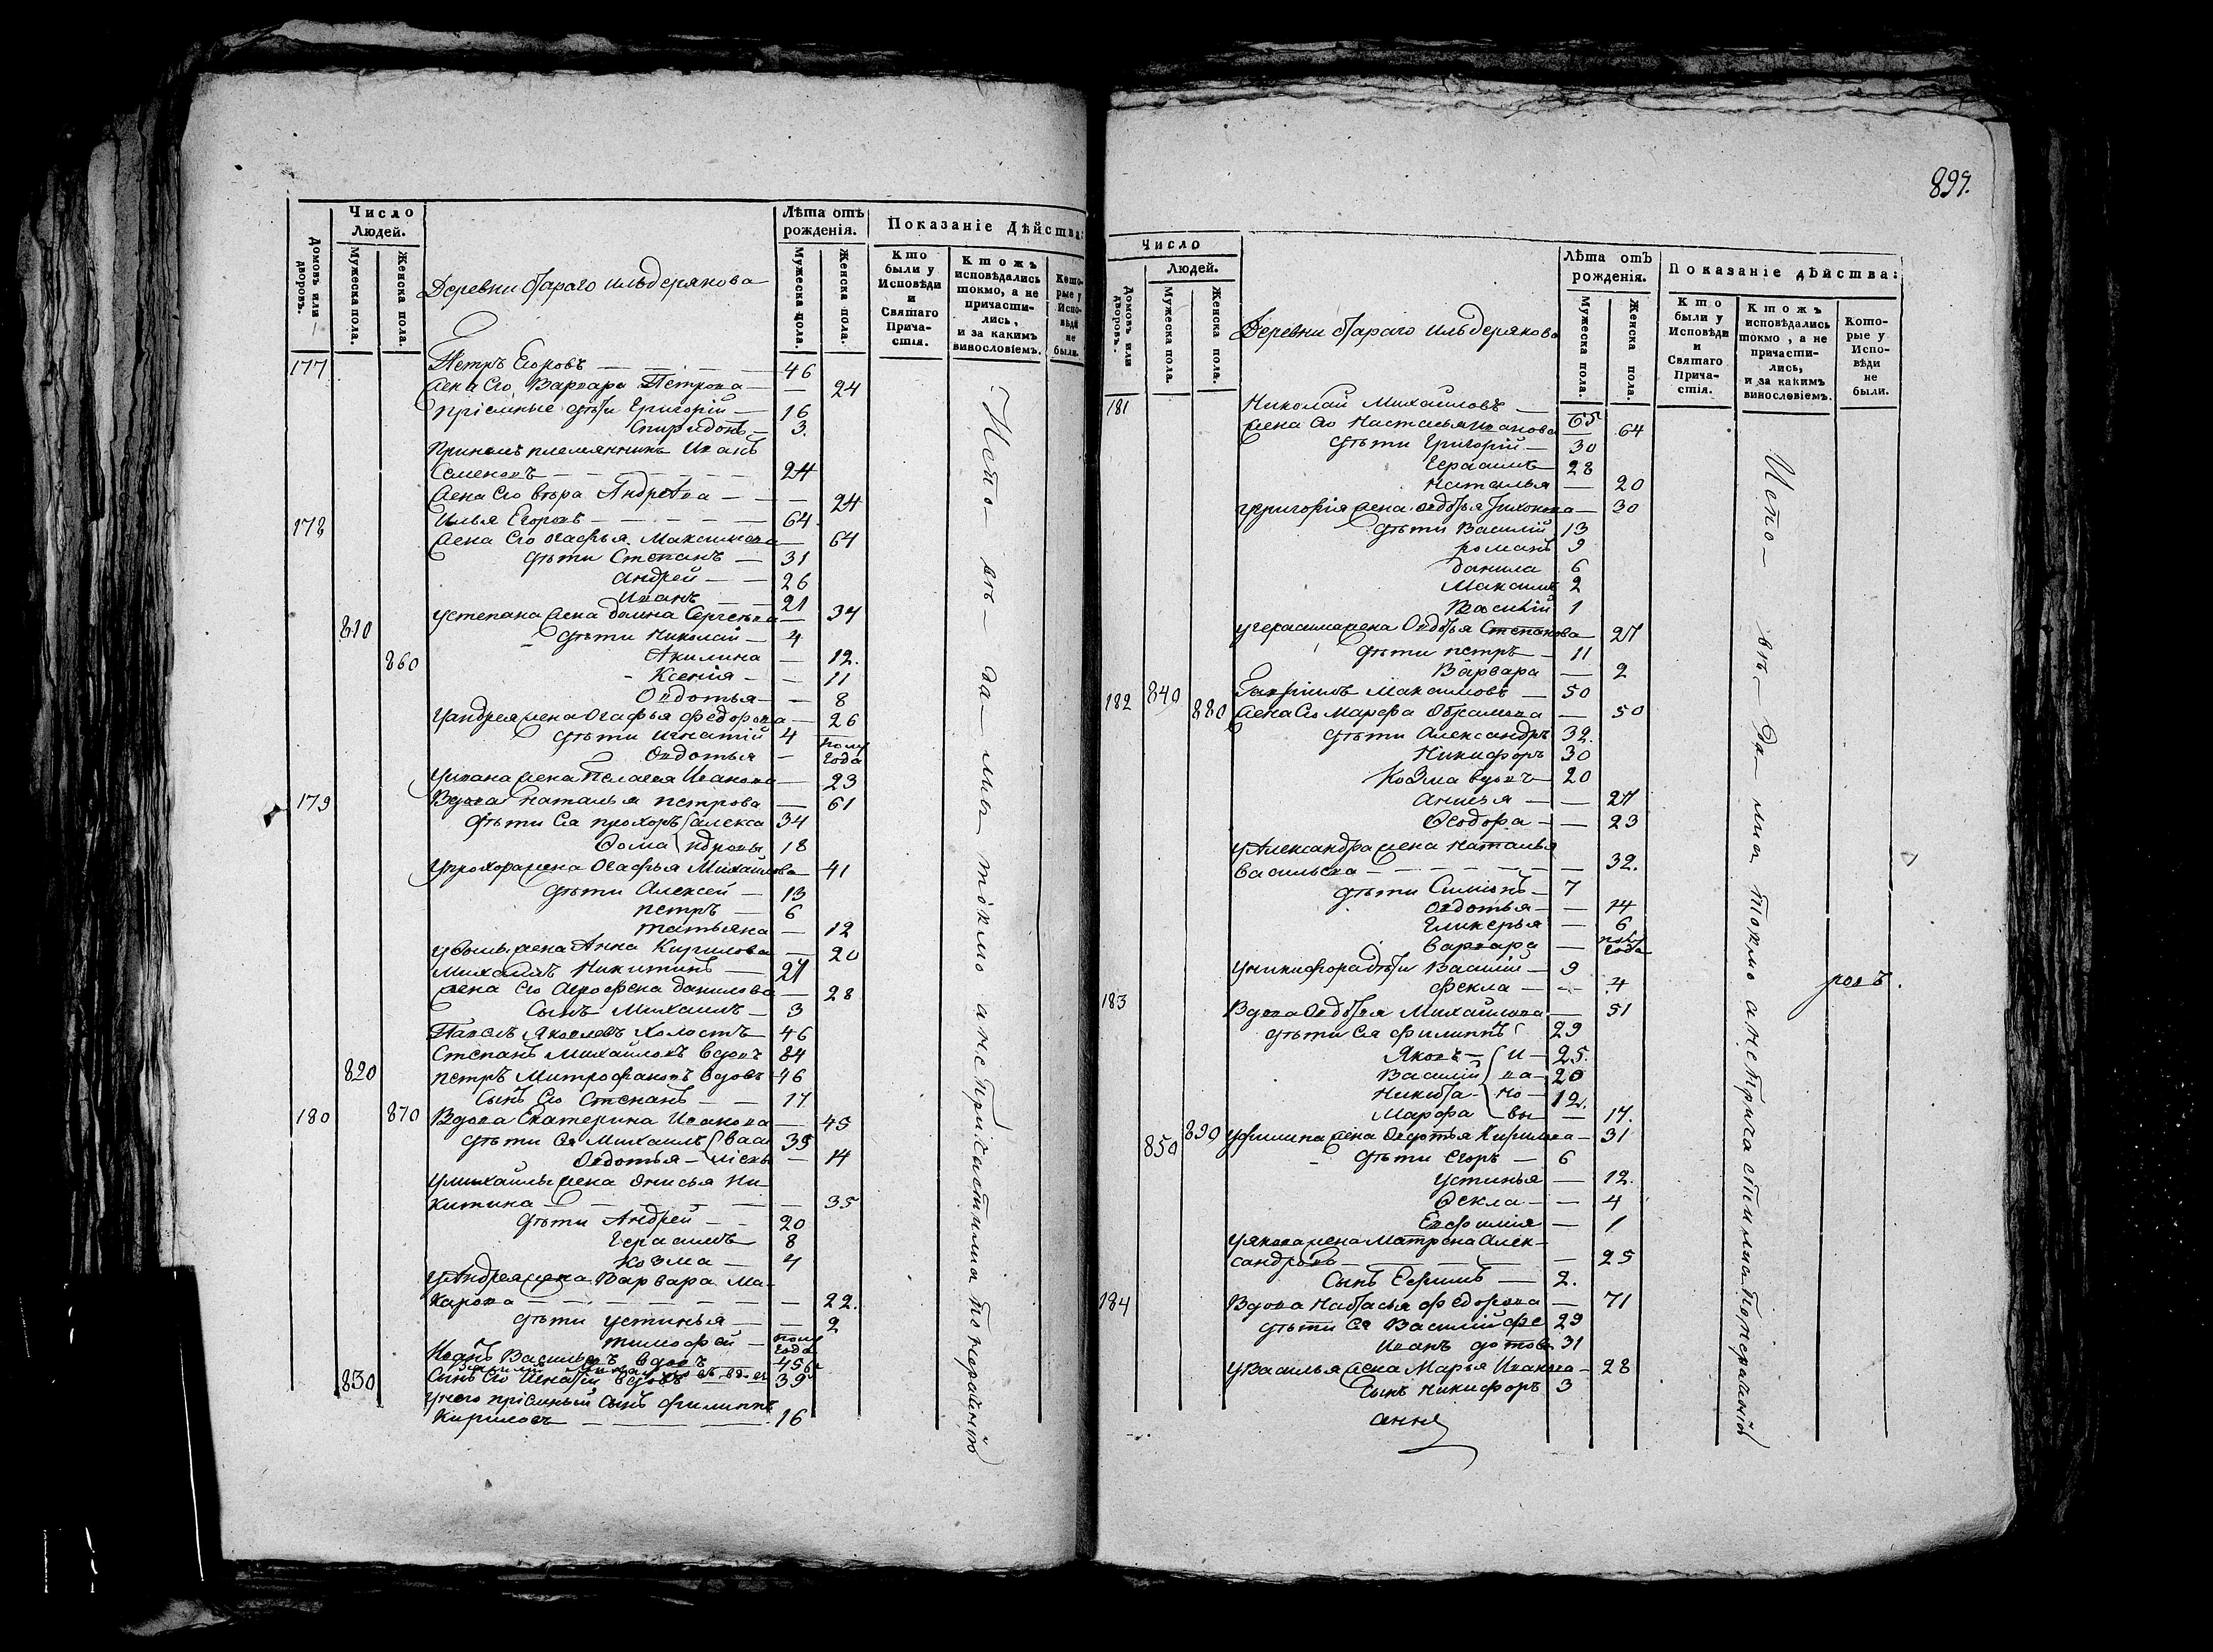 Число
Людей.
Домовъ или дворовъ.
Мужеска пола.
Женска пола.
Деревни Стараго Ильдерякова
Лѣта отъ
рожденія.
Мужеска пола.
Женска пола.
Показаніе Дѣйства:
Кто были у Исповѣди и Святаго Причастія.
Ктожъ исповѣдались токмо, а не причастились, и за какимъ винословіемъ.
Которые у Исповѣди не были.
177 Петръ Егоровъ — 46
Жена его Варвара Петрова — 24
пріемные дѣти Григорій — 16
Спиридонъ — 3.
племянникъ Иванъ
Семеновъ — 24
Жена его вѣра Андреева — 24
178 Илья Егоровъ — 64
Жена его огафья Максимова — 64
дѣти Степанъ — 31
андрей — 26
Иванъ — 21
устепана жена Сергеева — 34
810 дѣти Николай — 4
860 Акилина — 12.
Ксенія — 11
Овдотья — 8
уандрея жена Огафья федорова — 26
дѣти игнатій 4
Овдотья — полугода
уивана жена Пелагея Иванова — 23
179 Вдова наталья петрова — 61
дѣти Ея прохоръ алекса 34
Ѳома ндровы 18
упрохора жена Огафья Михайлова 41
дѣти Алексей — 13
петръ — 6
татьяна — 12
уѲомы жена Анна Кирилова — 20
Михаилъ Никитинъ — 27
жена его данилова — 28
Сынъ Михаилъ — 3
Павелъ Яковлевъ холостъ — 46
Степанъ Михайловъ вдовъ 84
820 петръ Митрофановъ вдовъ 46
Сынъ его Степанъ — 17
180 870 Вдова Екатерина Иванова — 45
дѣти Ея Михаилъ васи 39
Овдотья — льевы — 14
умихайлы жена Онисья Ни-
китина — 35
дѣти Андрей — 20
Герасимъ 8
Козма — 4
уАндрея жена Варвара Ма-
карова — 22.
дѣти устинья — 2
тимофей — полугода
Иванъ Васильевъ вдовъ 45
830 Сынъ его Игнатій вдовъ 39
унего пріемный Сынъ филиппъ
Кириловъ — 16
Исповѣдались токмо а не причастились по нераденію
899.
Число
Людей.
Домовъ или дворовъ.
Мужеска пола.
Женска пола.
Деревни Стараго Ильдерякова
Лѣта отъ
рожденія.
Мужеска пола.
Женска пола.
Показаніе дѣйства:
Кто были у Исповѣди и Святаго Причастія.
Ктожъ исповѣдались токмо, а не причастились, и за какимъ винословіемъ.
Которые у Исповѣди не были.
181 Николай Михайловъ — 65
жена его Настасья Иванова 64
дѣти Григорій — 30
Герасимъ 28
Наталья — 20
угригорія жена овдотья Тихонова — 30
дѣти Василій 13
романъ 9
данила 6
Максимъ 2
Василій 1
угерасима жена Овдотья Степанова 27
дѣти петръ — 11
Варвара — 2
182 840 Гавріилъ Максимовъ — 50
880 Жена его Марфа Обрамова — 50
дѣти Александръ 32.
Никифоръ 30
Козма вдовъ 20
анисья — 27
Ѳеодора — 23
уАлександра жена наталья
васильева — 32.
дѣти Симіонъ — 7
овдотья — 14
Гликерья — 6
варвара — полугода
уникифора дѣти Василій — 9
фекла — 4
183 Вдова Овдотья Михайлова — 51
дѣти Ея филиппъ 29
Яковъ — И — 25.
Василій ва — 20
Никита — но — 12.
Марфа — вы — 17.
850 890 уфилипа жена Овдотья Кирилова — 31
дѣти Егоръ — 6
устинья — 12.
Ѳекла — 4
Евфимія — 1
уякова жена Матрена Алек-
сандрова — 25
Сынъ Ефимъ — 2.
184 Вдова Настасья федорова — 71
дѣти Ея Василій фе 29
Иванъ дотов 31
уВасилья жена Марья Иванова — 28
Сынъ Никифоръ 3
анна
Исповѣдались токмо а не причастились по нераденію